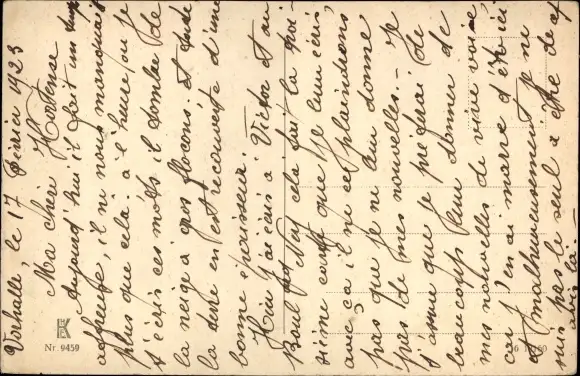 Vorhalle, le 17 Février 1923
Ma chèr Hortense
Aujourd'hui il fait un temp
affreuse, il ni nous manquait
plus que cela. à l'heure ou je
t'écris ces mots il tombe de
la neige à gros flocons. et toute
la terre en est recouverte d'une
bonne épaisseur.
Hier j'ai écris à Victor et au
Boul cela fait la troi-
sième carte que je leur écris,
avec ça il ni ce plaindrons
pas que je ne leur donne
pas de mes nouvelles. Je
t'assure que je préférai de
beaucoup leur donner de
mes nouvelles de vive voix,
car j'en ai marre d'être ici
et malheureusement je ni
suis pas le seul à être de cet
avis là.
Nr. 9459